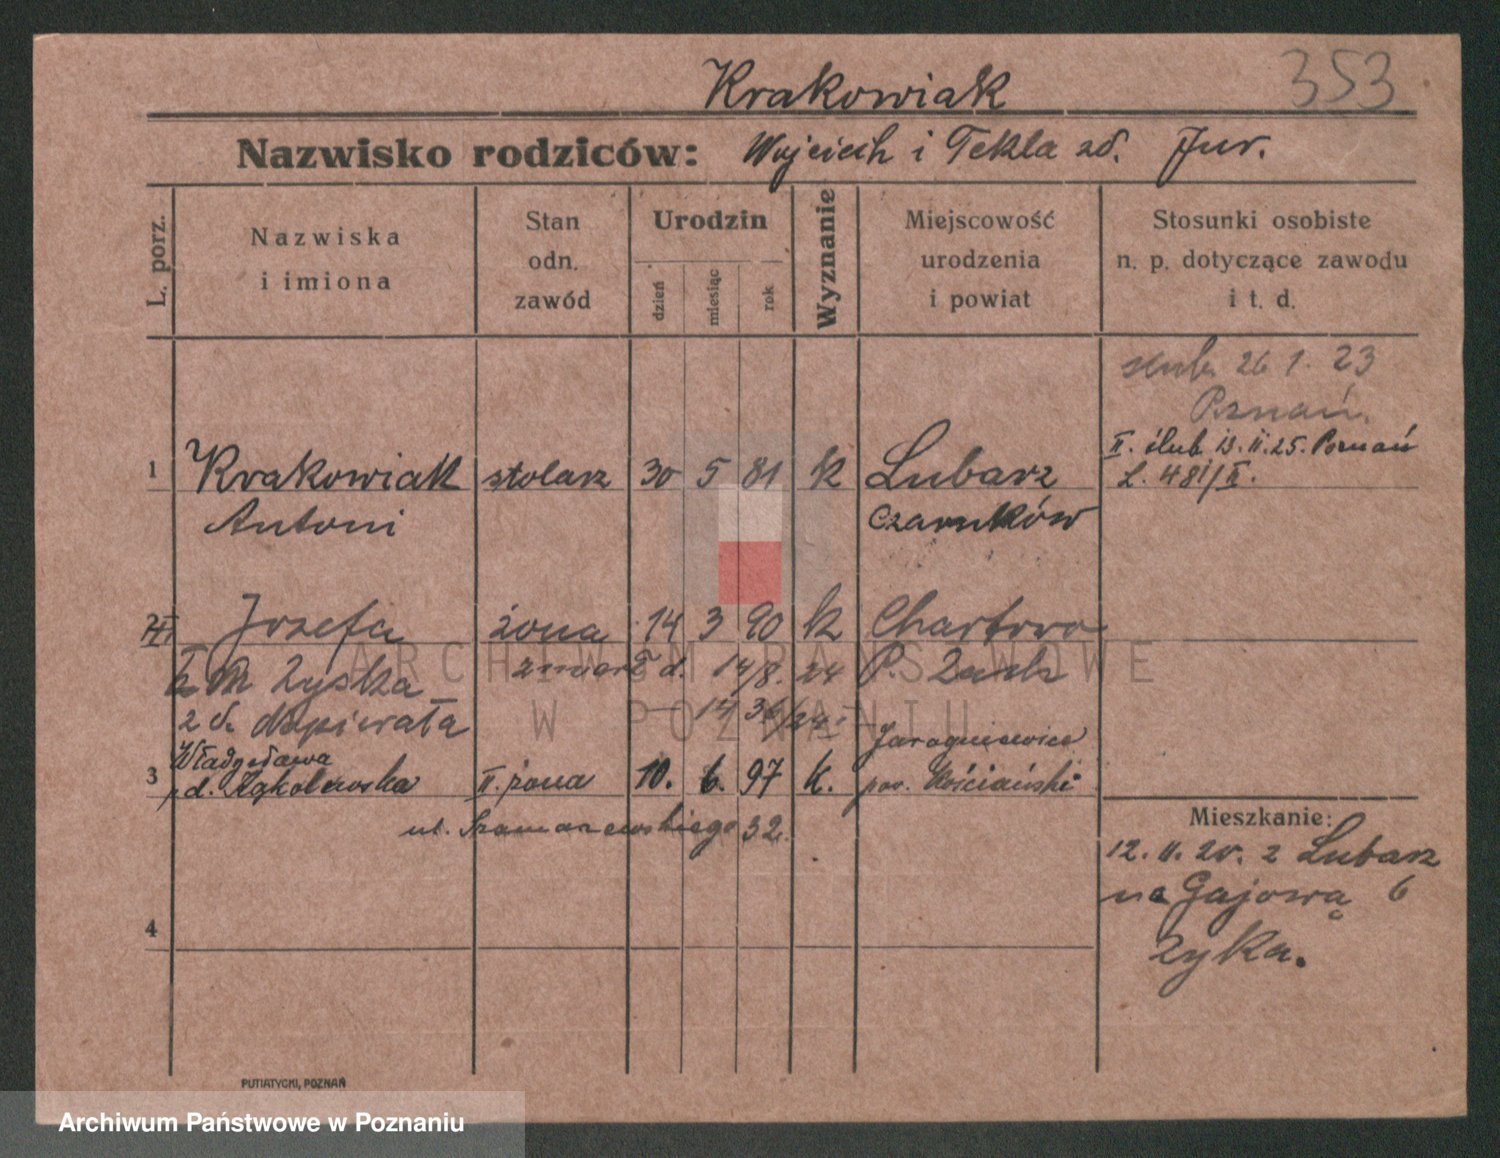 Krakowiak 353
Nazwisko rodziców: Wojciech i Tekla zd. Jur.
L. porz.
Nazwiska
i imiona
Stan
odn.
zawód
Urodzin
dzień
miesiąc
rok
Wyznanie
Miejscowość
urodzenia
i powiat
Stosunki osobiste
n. p. dotyczące zawodu
i t. d.
ślub 26 1. 23
Poznań
II. ślub 13. II. 25. Poznań
L. 481/II.
1 Krakowiak stolarz 30 5 81 k Lubarz
Antoni Czarnków
2 Józefa żona 14 3 90 k Chartowo
Zyska zmarł d. 14/8. 24 P. Zach
z d. dopierała
Władysława Jarogniewice
3 d. Kąkolewska II. żona 10. 6. 97 k. pow. Kościański
ul. Szamarzewskiego 32.
Mieszkanie:
12. II. 20. z Lubarz
na Gajową 6
Zyka.
4
PUTIATYCKI, POZNAŃ
ARCHIWUM PAŃSTWOWE
W POZNANIU
Archiwum Państwowe w Poznaniu